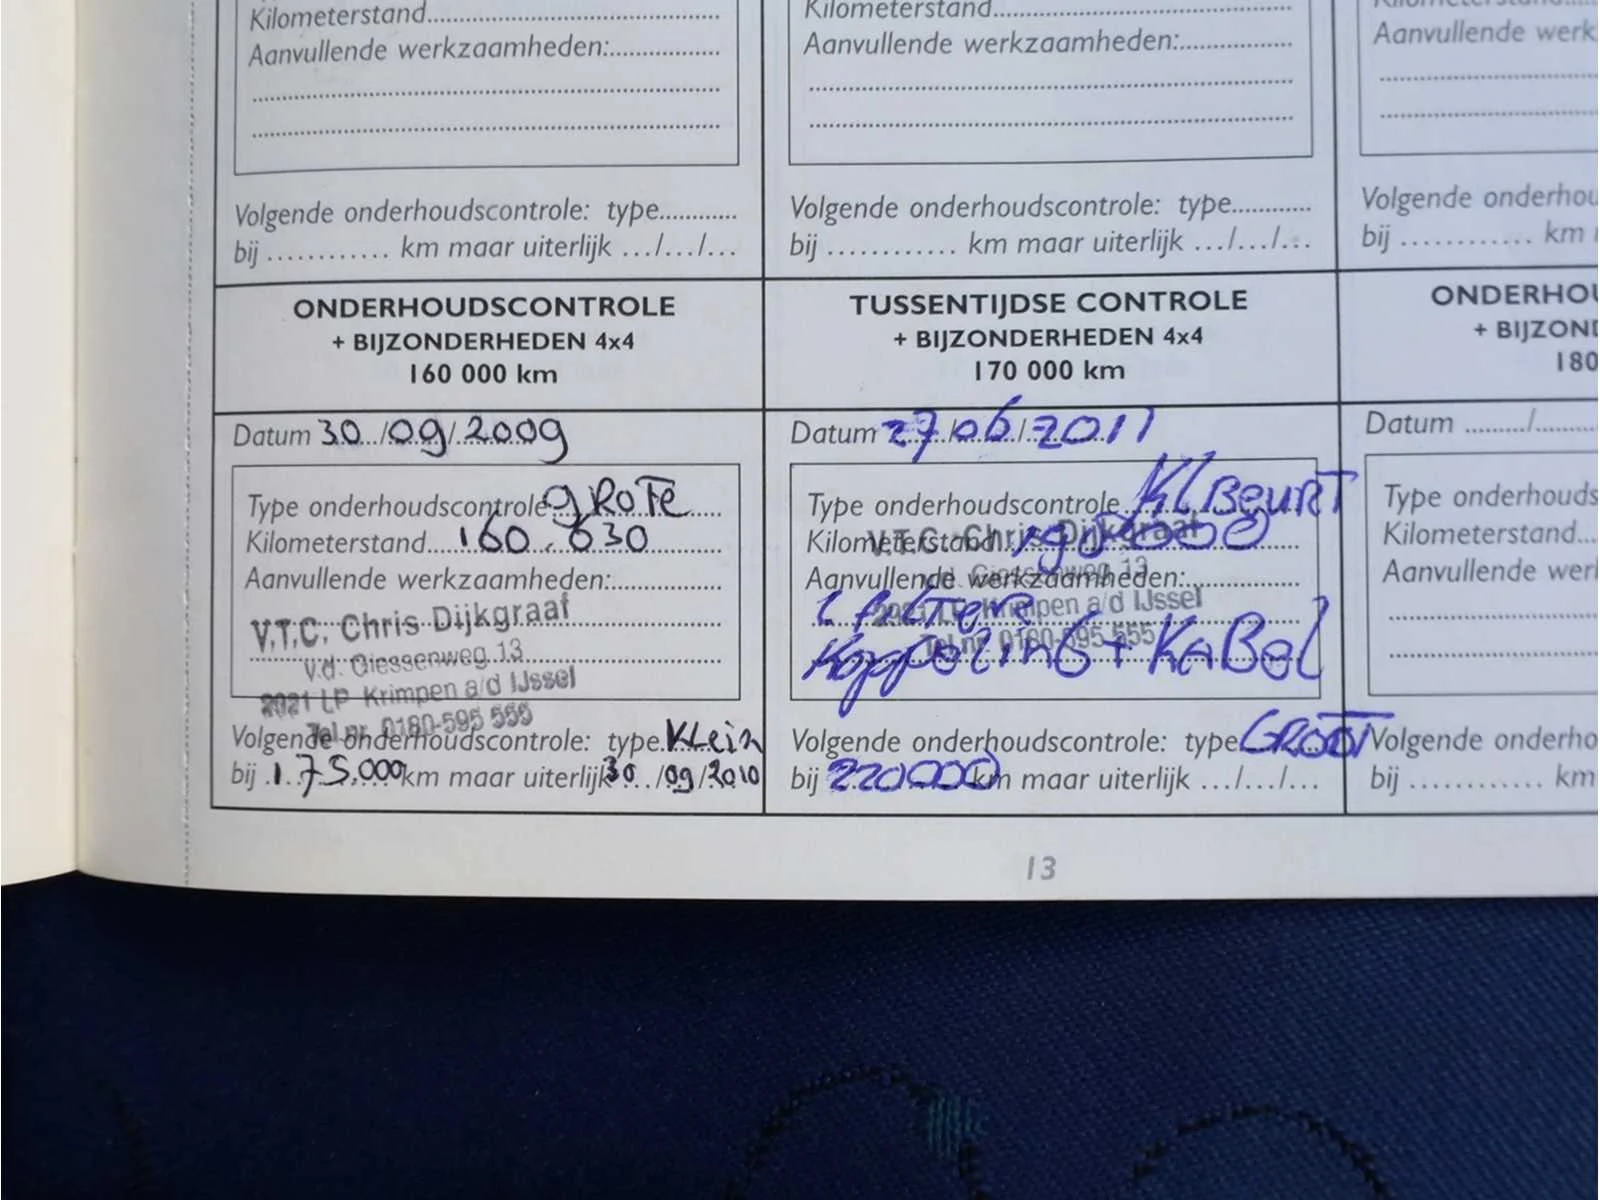 Kilometerstand
Aanvullende werkzaamheden:
Volgende onderhoudscontrole: type
bij km maar uiterlijk .../.../...
Kilometerstand
Aanvullende werkzaamheden:
Volgende onderhoudscontrole: type
bij km maar uiterlijk .../.../...
Aanvullende werk
Volgende onderhou
bij km
ONDERHOUDSCONTROLE
+ BIJZONDERHEDEN 4x4
160 000 km
Datum 30/09/2009
Type onderhoudscontrole gROTE
Kilometerstand 160.630
Aanvullende werkzaamheden:
V.T.C. Chris Dijkgraaf
v.d. Giessenweg 13
2921 LP Krimpen a/d IJssel
Tel.nr. 0180-595 555
Volgende onderhoudscontrole: type KLein
bij 175.000 km maar uiterlijk 30/09/2010
TUSSENTIJDSE CONTROLE
+ BIJZONDERHEDEN 4x4
170 000 km
Datum 27/06/2011
Type onderhoudscontrole KL BeuRT
V.T.C. Chris Dijkgraaf
Kilometerstand
v.d. Giessenweg 13
Aanvullende werkzaamheden:
2921 LP Krimpen a/d IJssel
Tel.nr. 0180-595 555
KoppelinG + KaBel
Volgende onderhoudscontrole: type GROOT
bij 220000 km maar uiterlijk .../.../...
ONDERHOU
+ BIJZOND
180
Datum
Type onderhouds
Kilometerstand
Aanvullende wer
Volgende onderho
bij km
13